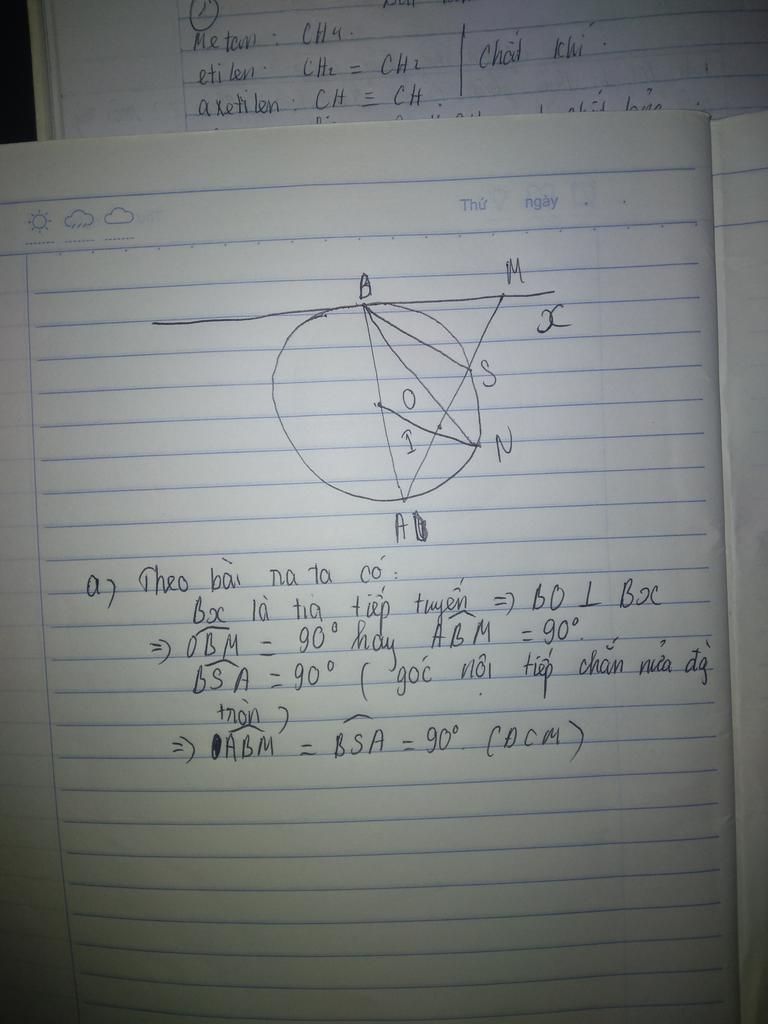 2
Metan: CH4.
etilen: CH2 = CH2 Chất khí.
axetilen: CH ≡ CH.
Thứ ngày
B M
x
S
O
I N
A
a) Theo bài ra ta có:
Bx là tia tiếp tuyến => BO ⊥ Bx
=> OBM = 90° hay ABM = 90°.
BSA = 90° ( góc nội tiếp chắn nửa đg
tròn )
=> ABM = BSA = 90°. (ĐCM)